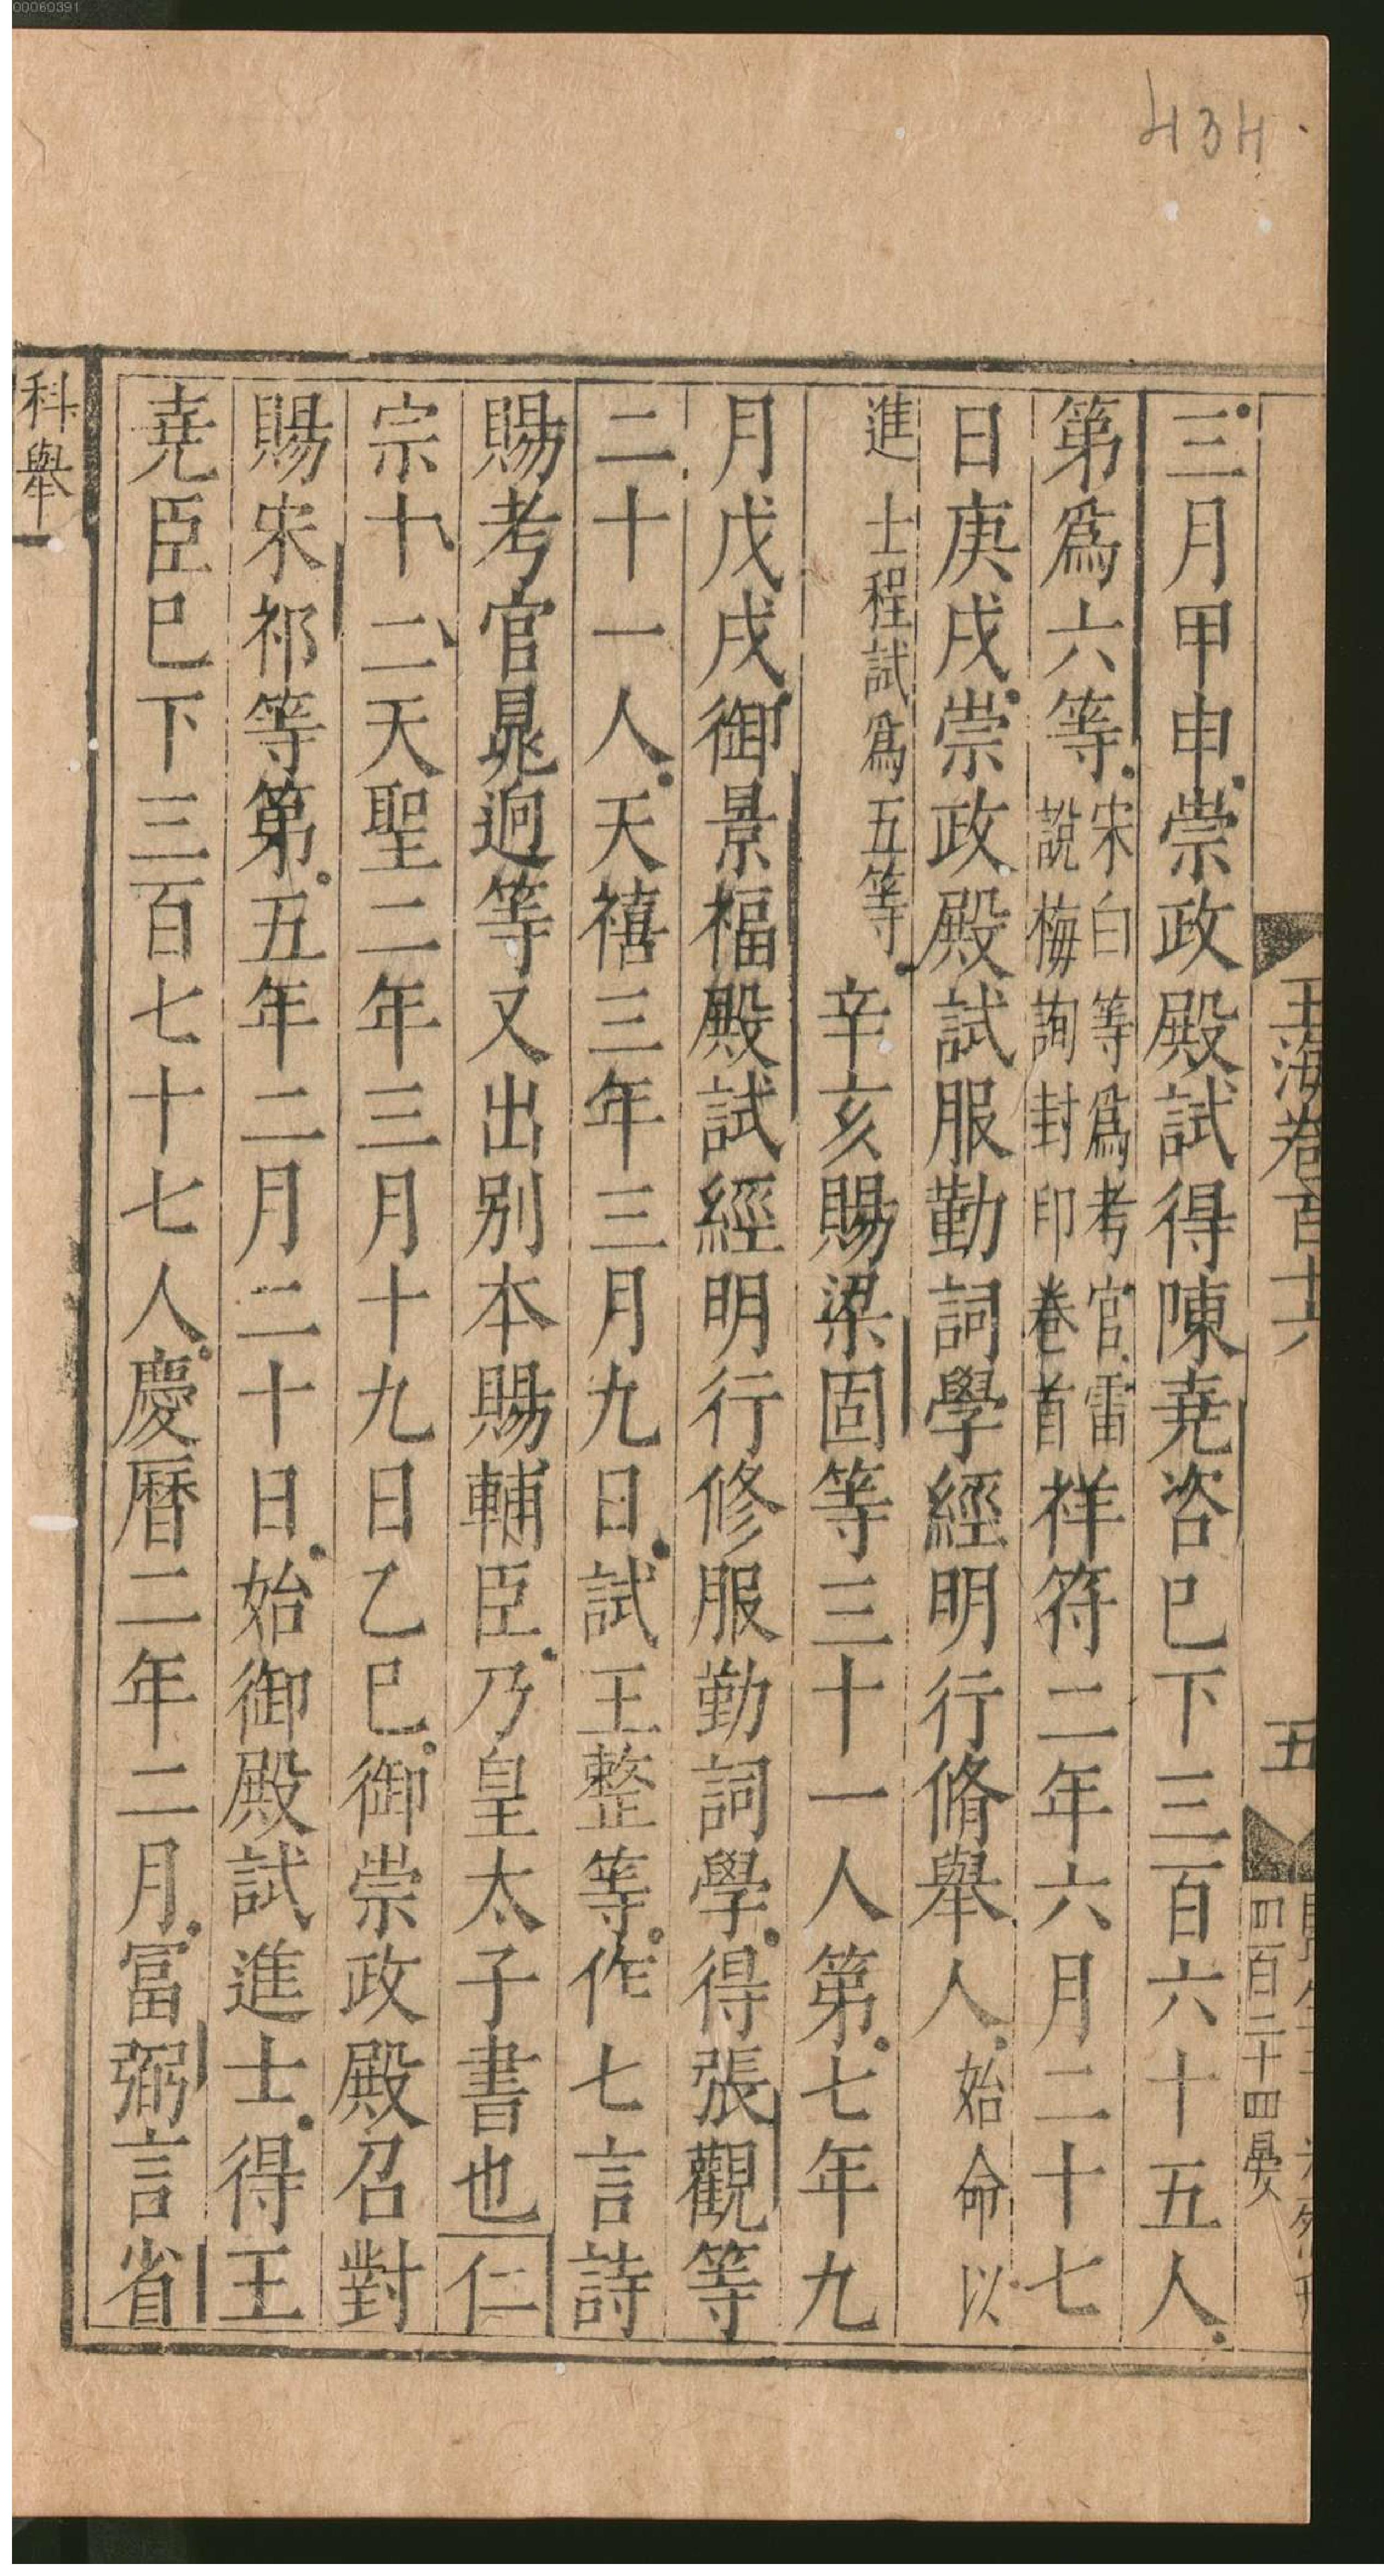 00060391
434
玉海卷百十六
五
四百二十四㬅
三月甲申崇政殿試得陳堯咨已下三百六十五人
第爲六等宋白等爲考官雷說梅詢封印卷首祥符二年六月二十七
日庚戌崇政殿試服勤詞學經明行脩舉人始命以
進士程試爲五等辛亥賜梁固等三十一人第七年九
月戊戌御景福殿試經明行修服勤詞學得張觀等
二十一人天禧三年三月九日試王整等作七言詩
賜考官晁逈等又出別本賜輔臣乃皇太子書也仁
宗十二天聖二年三月十九日乙巳御崇政殿召對
賜宋祁等第五年二月二十日始御殿試進士得王
堯臣已下三百七十七人慶曆二年二月富弼言省
科舉一